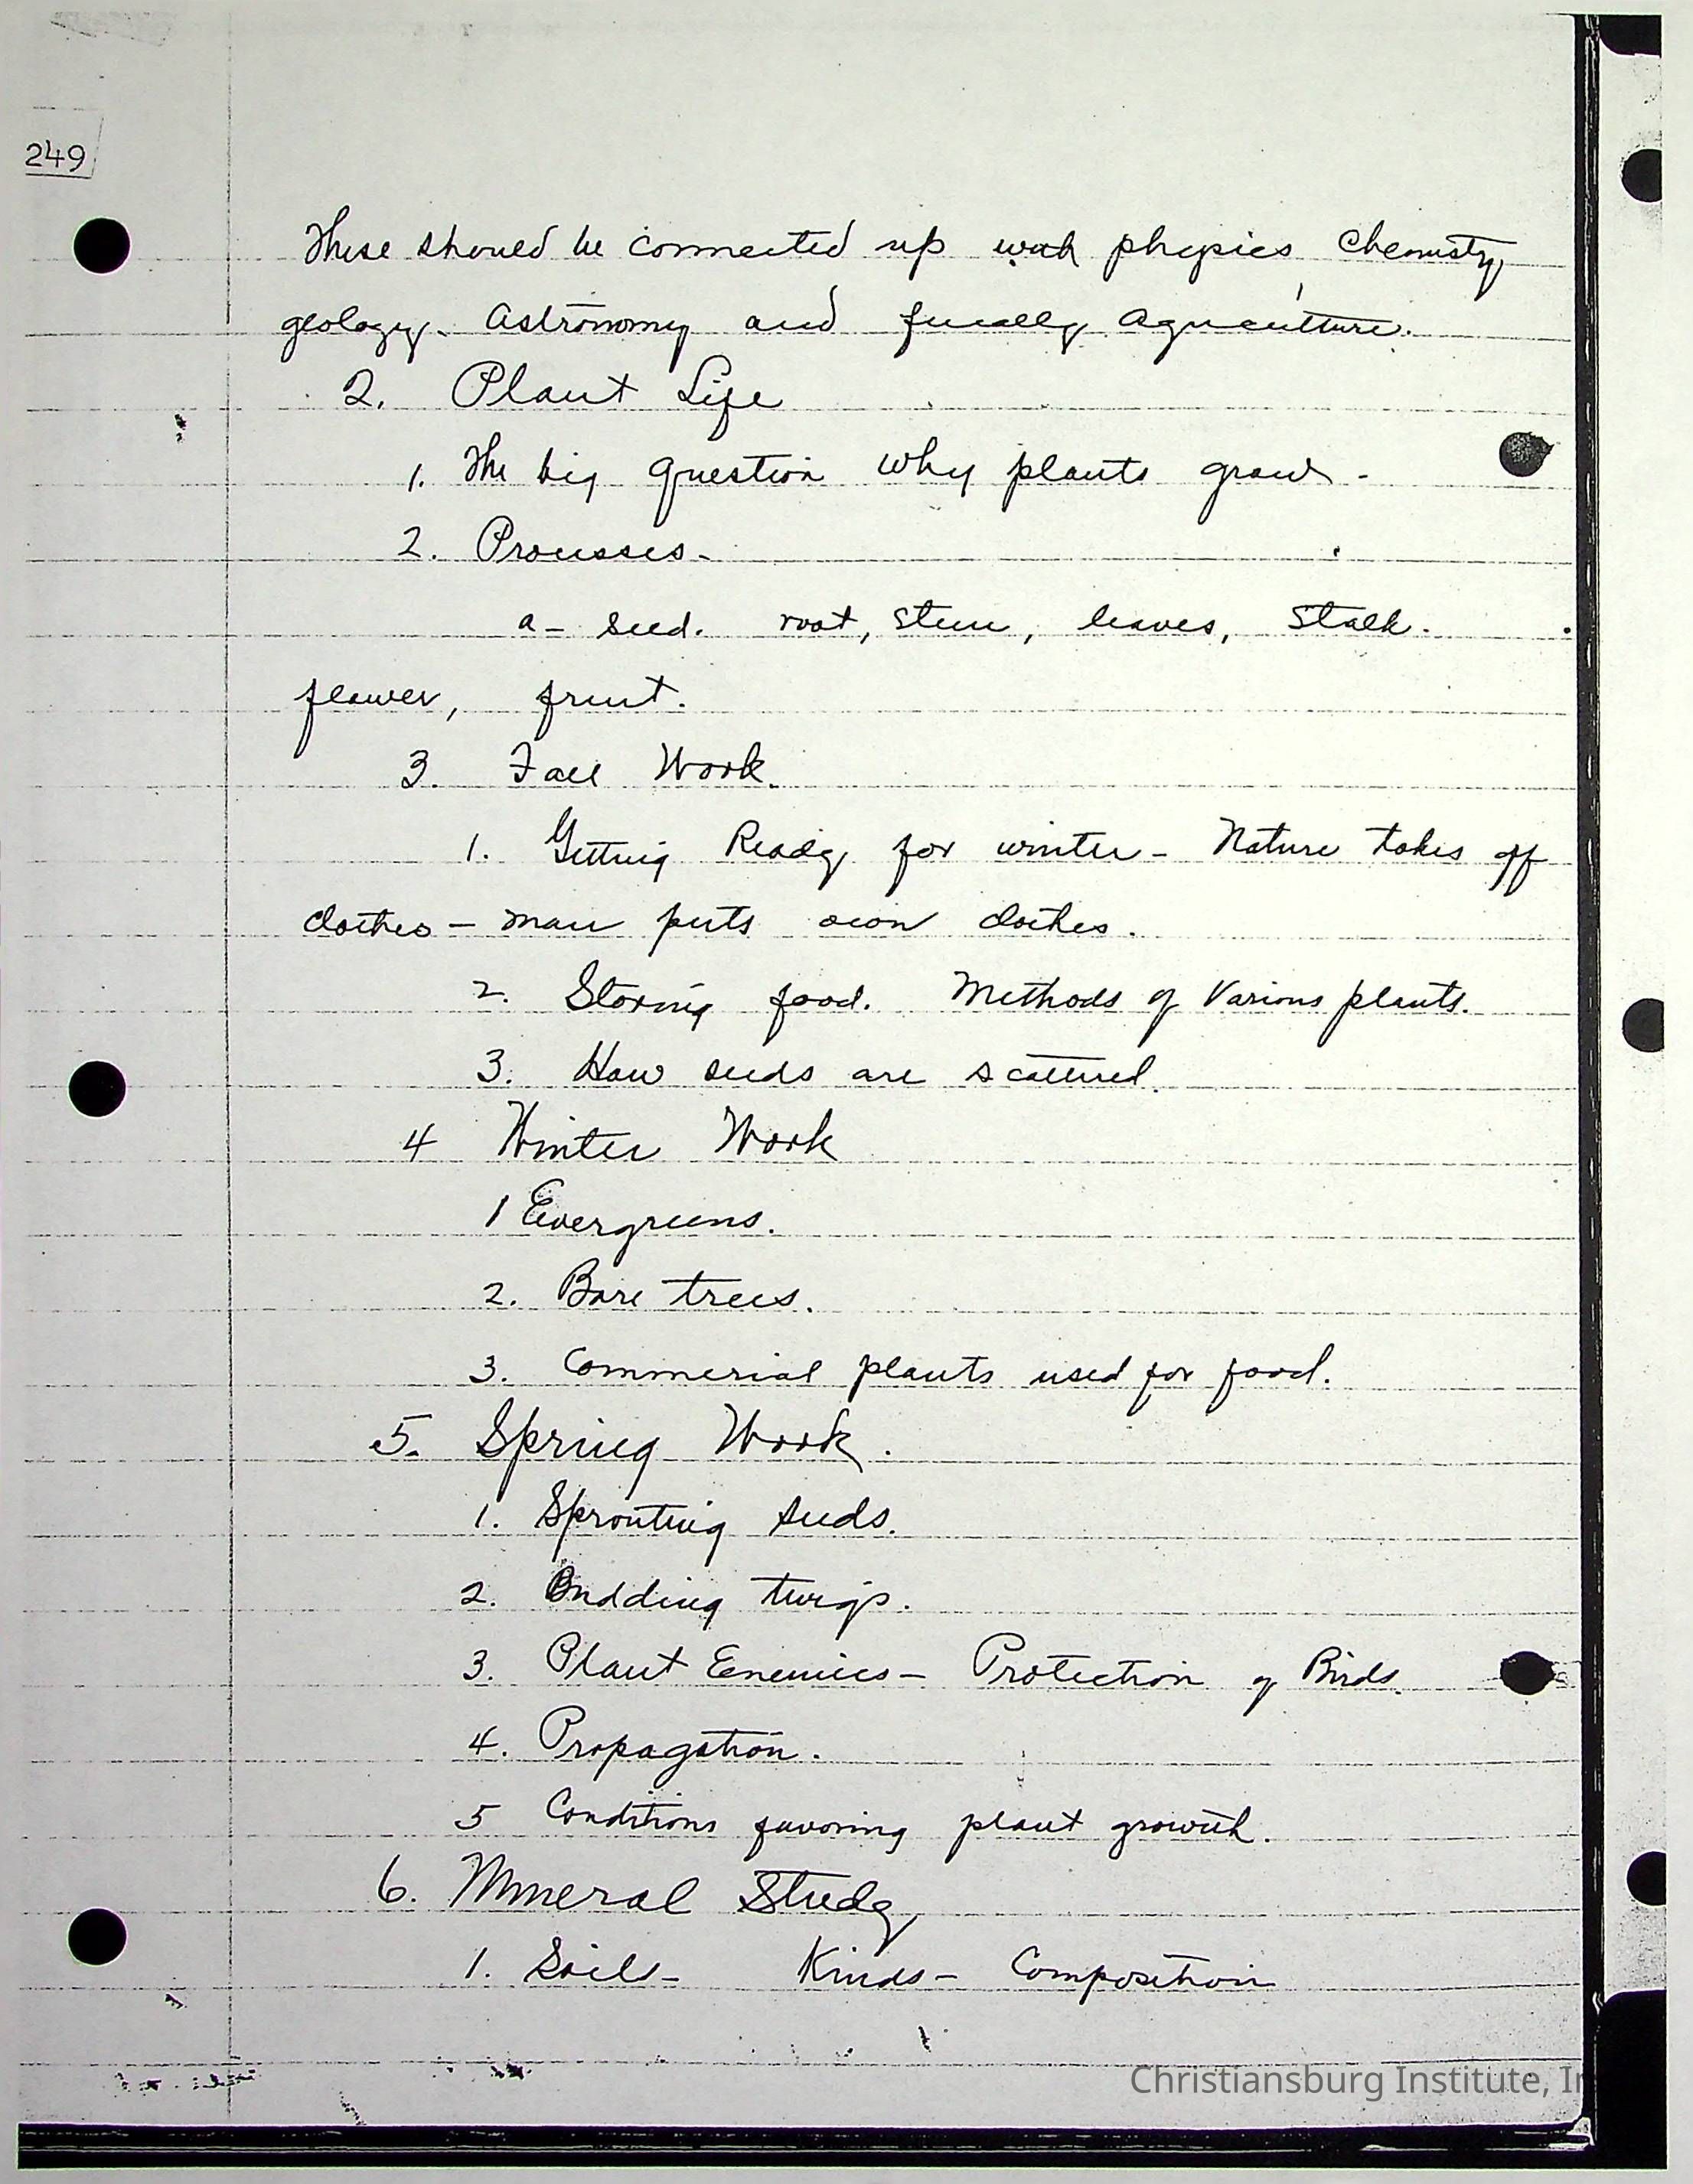 249
These should be connected up with physics, Chemistry,
geology. Astronomy and finally Agriculture.
2. Plant Life
1. The big question why plants grow -
2. Prousses -
a - seed. root, stem, leaves, stalk.
flower, fruit.
3. Fall Work.
1. Getting Ready for winter - Nature takes off
clothes - man puts own clothes.
2. Storing food. Methods of Various plants.
3. How seeds are scattered.
4 Winter Work
1 Evergreens.
2. Bare trees.
3. Commerial plants used for food.
5. Spring Work.
1. Sprouting seeds.
2. Budding twigs.
3. Plant Enemies - Protection of Birds.
4. Propagation.
5 Conditions favoring plant growth.
6. Mineral Study
1. Soils - Kinds - Composition
Christiansburg Institute, In